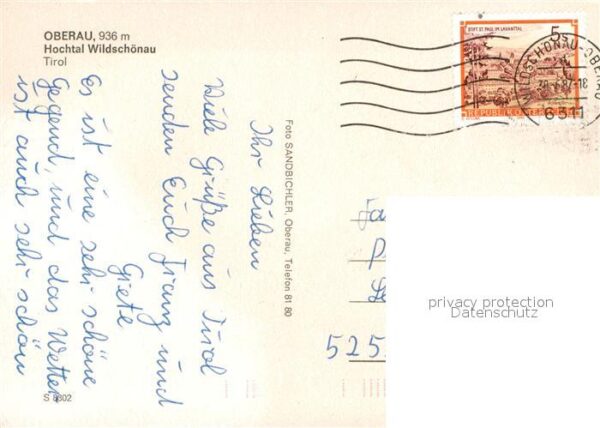 OBERAU, 936 m
Hochtal Wildschönau
Tirol
Ihr Lieben
Viele Grüße aus Tirol
senden Euch Franz und
Giete
Es ist eine sehr schöne
Gegend, und das Wetter
ist auch sehr schön
S 8802
Foto SANDBICHLER, Oberau, Telefon 81 80
STIFT ST. PAUL IM LAVANTTAL
5s
REPUBLIK
WILDSCHÖNAU-OBERAU
6311
525
privacy protection
Datenschutz